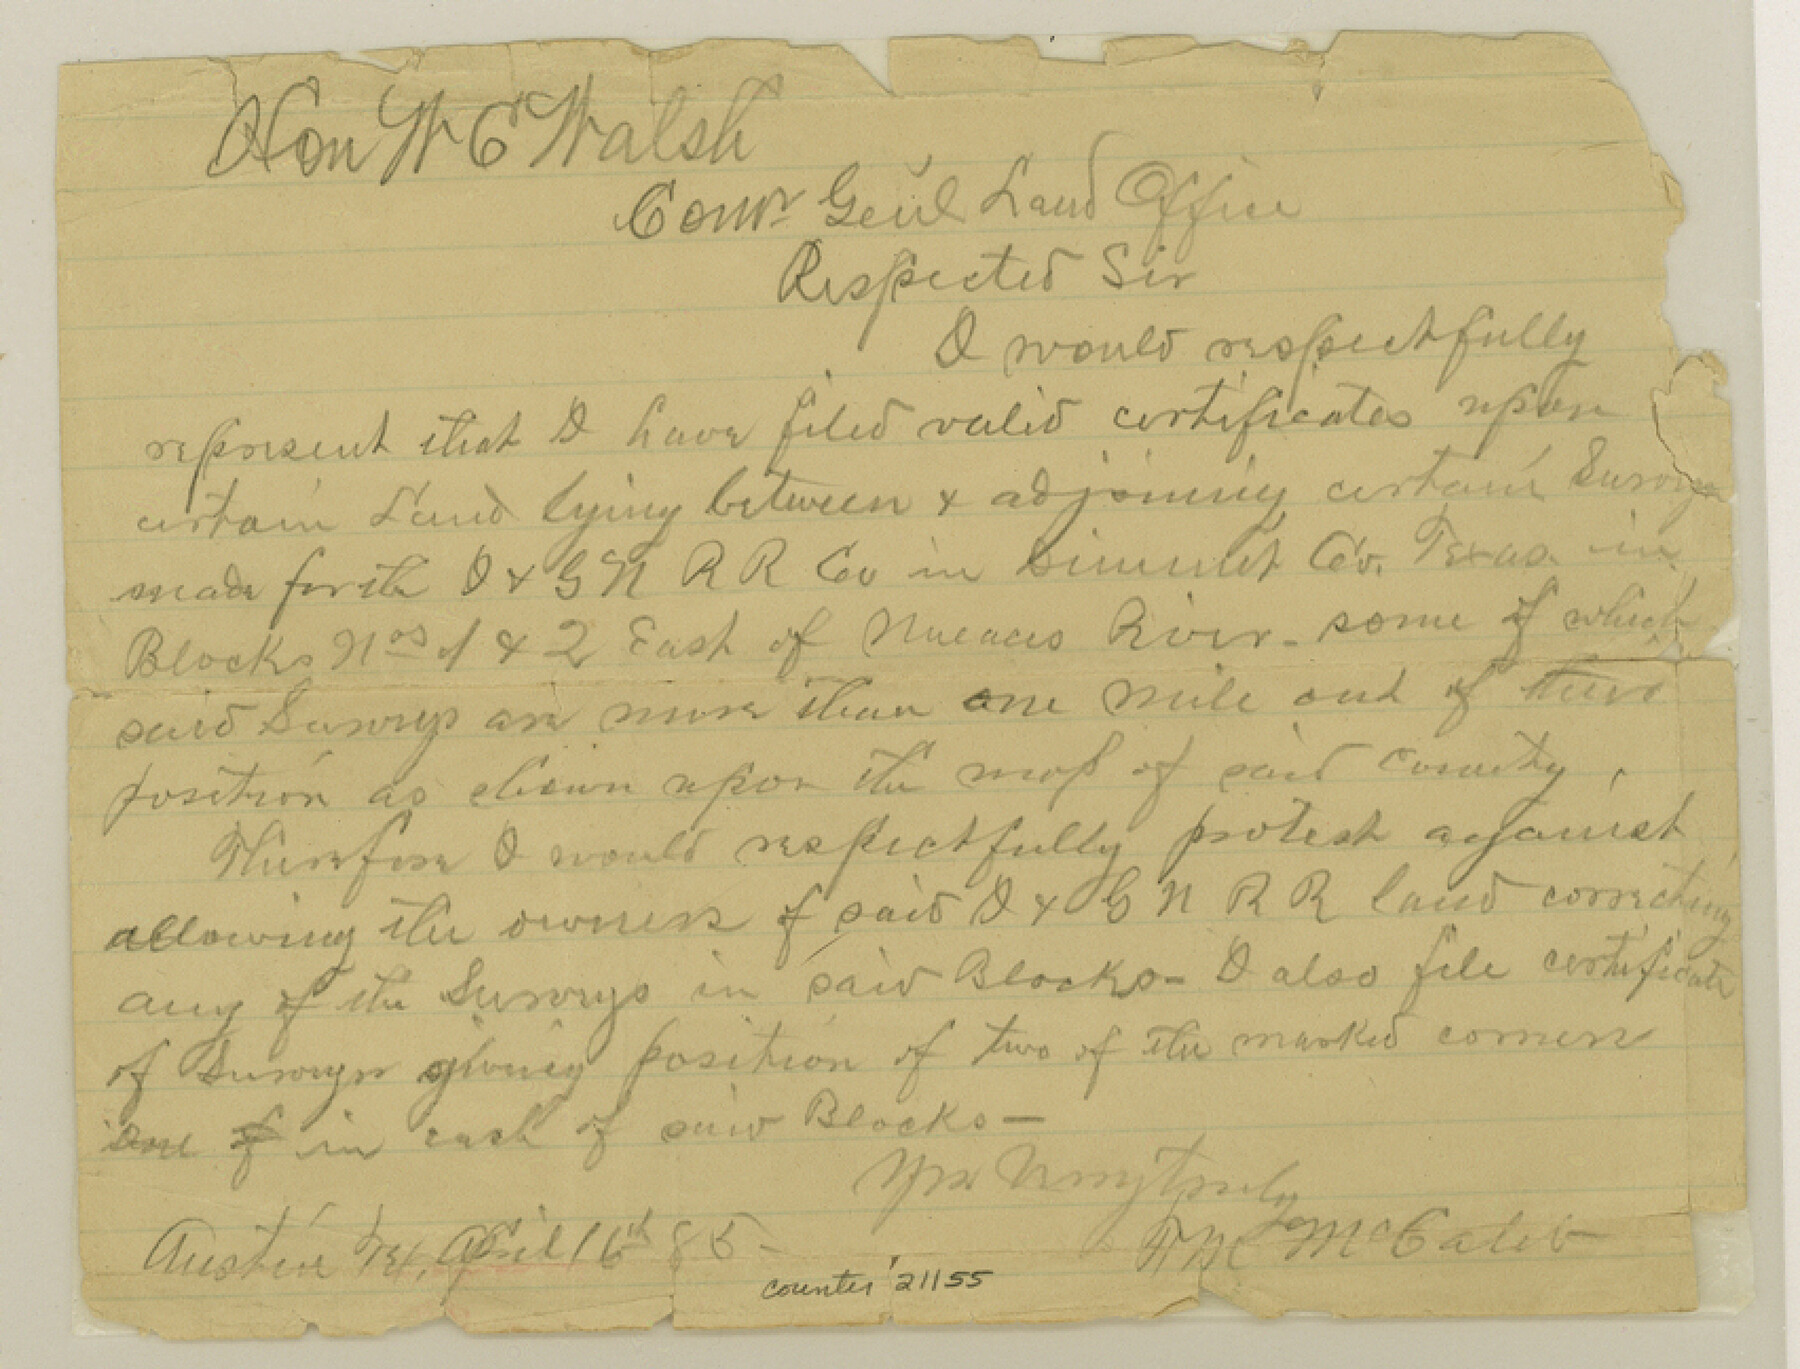 Hon W C Walsh
Comr Genl Land Office
Respected Sir
I would respectfully
represent that I have filed valid certificates upon
certain Land lying between & adjoining certain Surveys
made for the I & G N R R Co in Dimmit Co. Texas in
Blocks Nos 1 & 2 East of Nueaces River - some of which
said Surveys are more than one mile out of their
position as shown upon the map of said County.
Therefore I would respectfully protest against
allowing the owners of said I & G N R R land correcting
any of the Surveys in said Blocks - I also file certificate
of Surveyr giving position of two of the marked corners
one of in each of said Blocks —
Yrs Very truly
Austin Tex, April 16th 85 -
McCaleb
counter 21155